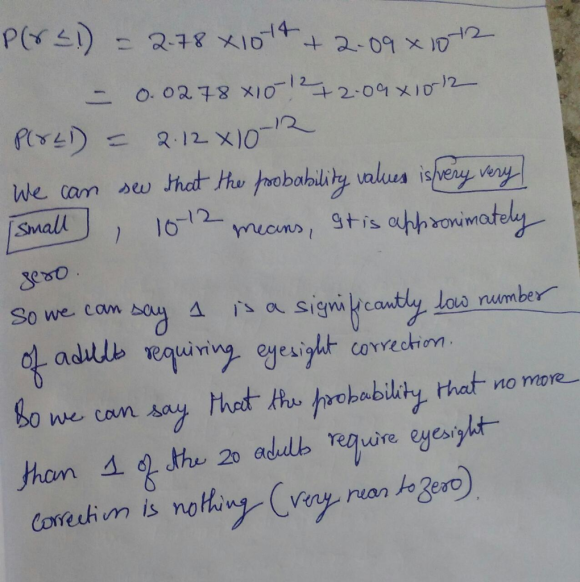 P(r ≤ 1) = 2.78 × 10⁻¹⁴ + 2.09 × 10⁻¹²
= 0.0278 × 10⁻¹² + 2.09 × 10⁻¹²
P(r ≤ 1) = 2.12 × 10⁻¹²
We can see that the probability values is very very
small , 10⁻¹² means, It is approximately
zero.
So we can say 1 is a significantly low number
of adults requiring eyesight correction.
So we can say that the probability that no more
than 1 of the 20 adults require eyesight
correction is nothing (very near to zero).